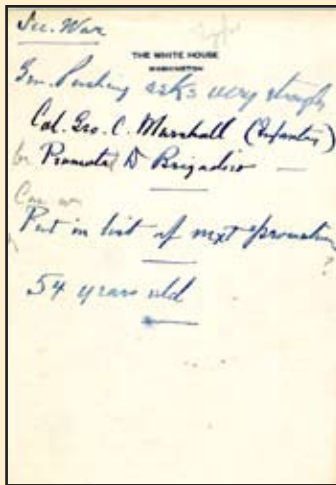 Sec. War
THE WHITE HOUSE
WASHINGTON
Gen. Pershing asks very strongly
Col. Geo. C. Marshall (Infantry)
be Promoted to Brigadier
Can we
Put in list of next promotions
?
54 years old